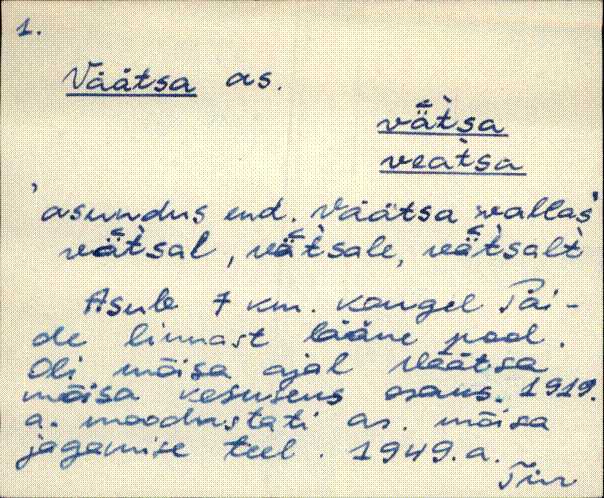 1.
Väätsa as.
vä̆t̀sa
veat̀sa
'asundus end. Väätsa vallas'
vä̆t̀sal, vä̆t̀sale, vä̆t̀salt
Asub 7 km. kaugel Pai-
de linnast lääne pool.
Oli mõisa ajal Väätsa
mõisa keskuseks osaks. 1919.
a. moodustati as. mõisa
jagamise teel. 1949.a.